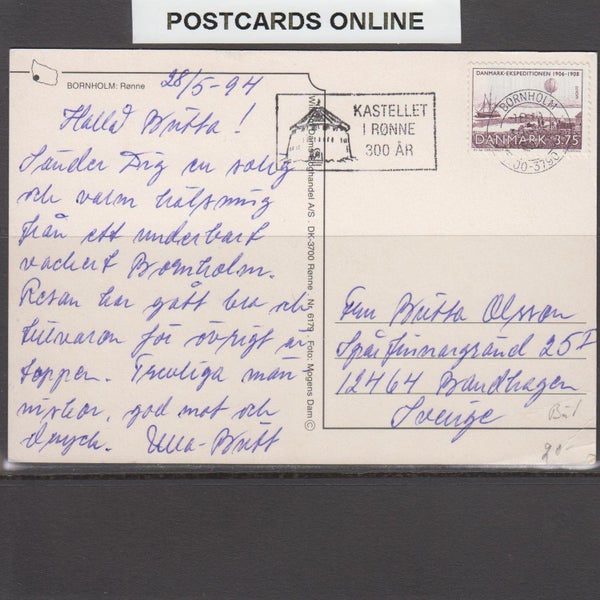 POSTCARDS ONLINE
BORNHOLM: Rønne
28/5-94
Hallå Britta!
Sänder Dig en solig
och varm hälsning
från ett underbart
vackert Bornholm.
Resan har gått bra och
tillvaron för övrigt är
toppen. Trevliga män
niskor, god mat och
dryck. Ulla-Britt
DK-3700 Rønne · Nr. 6179 · Foto: Mogens Dam ©
KASTELLET
I RØNNE
300 ÅR
DANMARK-EKSPEDITIONEN 1906-1908
DANMARK 3.75
BORNHOLM
Britta Olsson
Spårfinnargränd 25
12464 Bandhagen
Sverige
20:-